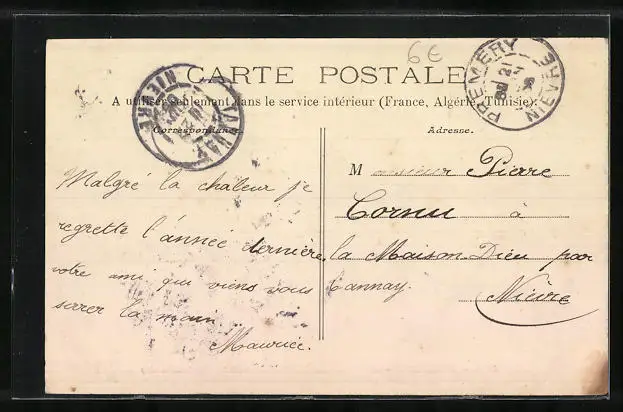 6€
CARTE POSTALE
A utiliser seulement dans le service intérieur (France, Algérie, Tunisie).
PREMERY
21
NIEVRE
TANNAY
NIEVRE
Correspondance.
Adresse.
Malgré la chaleur je
regrette l'année dernière,
votre ami qui viens vous
serrer la main
Maurice.
Monsieur Pierre
Cornu à
la Maison-Dieu par
Tannay.
Nièvre